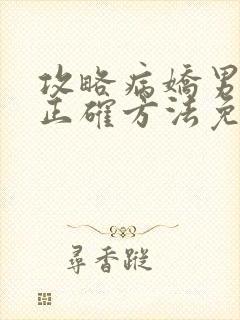 攻略病嬌男
正確方法免
尋香蹤